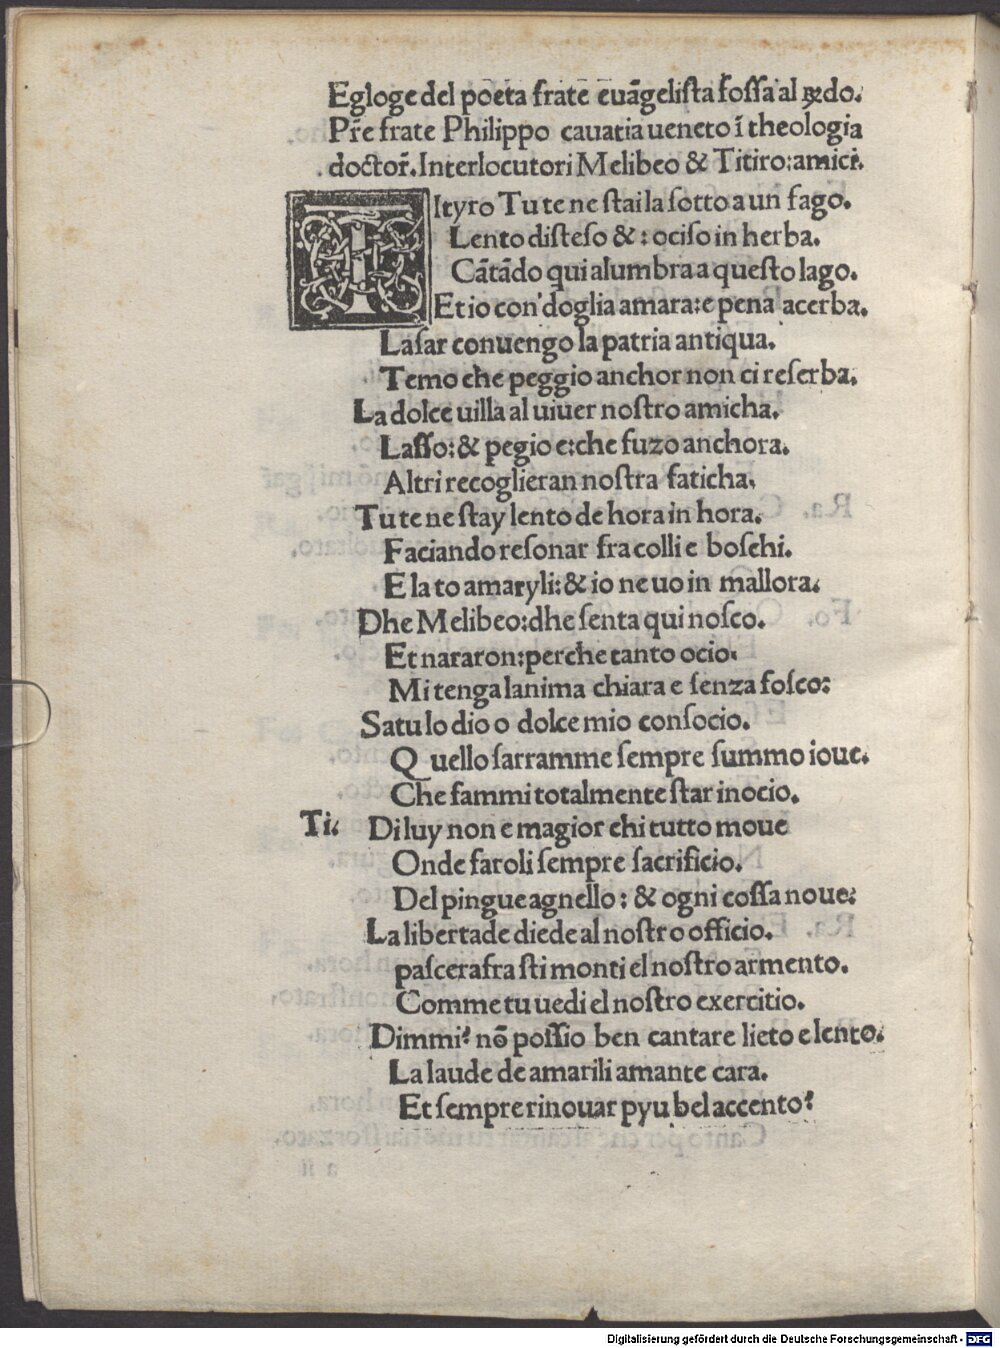 Egloge del poeta frate euāgeliſta foſſa al ꝛdo.
Pr̄e frate Philippo cauatia ueneto ī theologia
doctor̄. Interlocutori Melibeo & Titiro: amici.
TItyro Tu te ne ſtai la ſotto a un fago.
Lento diſteſo & : ocioſo in herba.
Cātādo qui alumbra a queſto lago.
Et io con doglia amara: e pena acerba.
Laſar conuengo la patria antiqua.
Temo che peggio anchor non ci reſerba.
La dolce uilla al uiuer noſtro amicha.
Laſſo: & pegio e: che fuzo anchora.
Altri recoglieran noſtra faticha.
Tu te ne ſtay lento de hora in hora.
Faciando reſonar fra colli e boſchi.
E la to amaryli: & io ne uo in mallora.
Dhe Melibeo: dhe ſenta qui noſco.
Et nararon: perche tanto ocio.
Mi tenga lanima chiara e ſenza foſco:
Satu lo dio o dolce mio conſocio.
Quello ſarramme ſempre ſummo ioue.
Che fammi totalmente ſtar inocio.
Ti. Di luy non e magior chi tutto moue
Onde faroli ſempre ſacrificio.
Del pingue agnello : & ogni coſſa noue:
La libertade diede al noſtro officio.
paſcera fra ſti monti el noſtro armento.
Comme tu uedi el noſtro exercitio.
Dimmi? nō poſſio ben cantare lieto e lento.
La laude de amarili amante cara.
Et ſempre rinouar pyu bel accento?
Digitalisierung gefördert durch die Deutsche Forschungsgemeinschaft - DFG